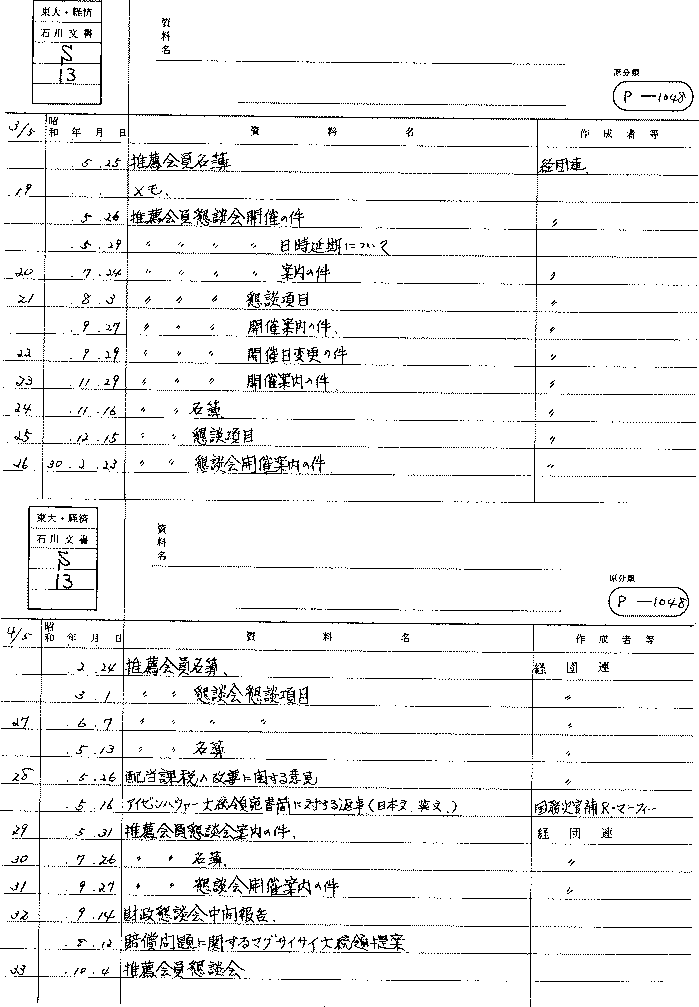 東大・経済
石川文書
S
13
資料名
原分類
P-1048
3/5 昭和 年 月 日 資料名 作成者等
5.25 推薦会員名簿 経団連
19 メモ、
5.26 推薦会員懇談会開催の件 〃
5.29 〃 〃 〃 〃 日時延期について
20 7.24 〃 〃 〃 〃 案内の件 〃
21 8.3 〃 〃 〃 懇談項目 〃
9.27 〃 〃 〃 開催案内の件、 〃
22 9.29 〃 〃 〃 開催日変更の件 〃
23 11.29 〃 〃 〃 開催案内の件 〃
24 11.16 〃 〃 名簿 〃
25 12.15 〃 〃 懇談項目 〃
26 30.2.23 〃 〃 懇談会開催案内の件 〃
東大・経済
石川文書
S
13
資料名
原分類
P-1048
4/5 昭和 年 月 日 資料名 作成者等
2.24 推薦会員名簿、 経団連
3.1 〃 〃 懇談会懇談項目 〃
27 6.7 〃 〃 〃 〃 〃
5.13 〃 〃 名簿 〃
28 5.26 配当課税の改善に関する意見 〃
5.16 アイゼンハウァー大統領宛書簡に対する返事(日本文、英文、) 国務次官補R・マーフィー
29 5.31 推薦会員懇談会案内の件、 経団連
30 7.26 〃 〃 名簿、 〃
31 9.27 〃 〃 懇談会開催案内の件 〃
32 9.14 財政懇談会中間報告、
8.12 賠償問題に関するマグサイサイ大統領提案
33 10.4 推薦会員懇談会